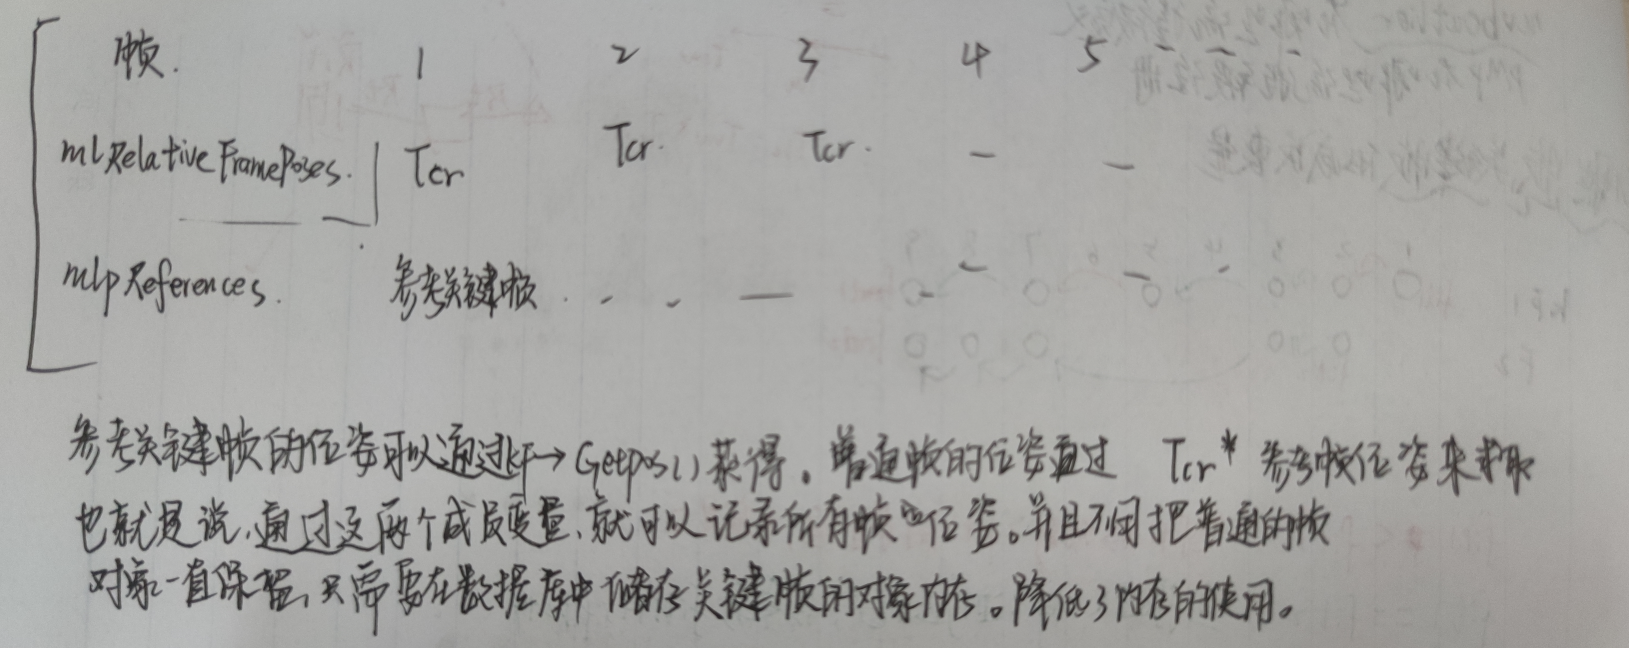 帧. 1 2 3 4 5 - - -
mlRelativeFramePoses. Tcr Tcr. Tcr. - -
mlpReferences. 参考关键帧 . - - — - - - -
参考关键帧的位姿可以通过kF→Getpos()获得。普通帧的位姿通过 Tcr* 参考帧位姿来求取
也就是说,通过这两个成员变量,就可以记录所有帧的位姿。并且不用把普通的帧
对象一直保留,只需要在数据库中储存关键帧的对象内存。降低了内存的使用。